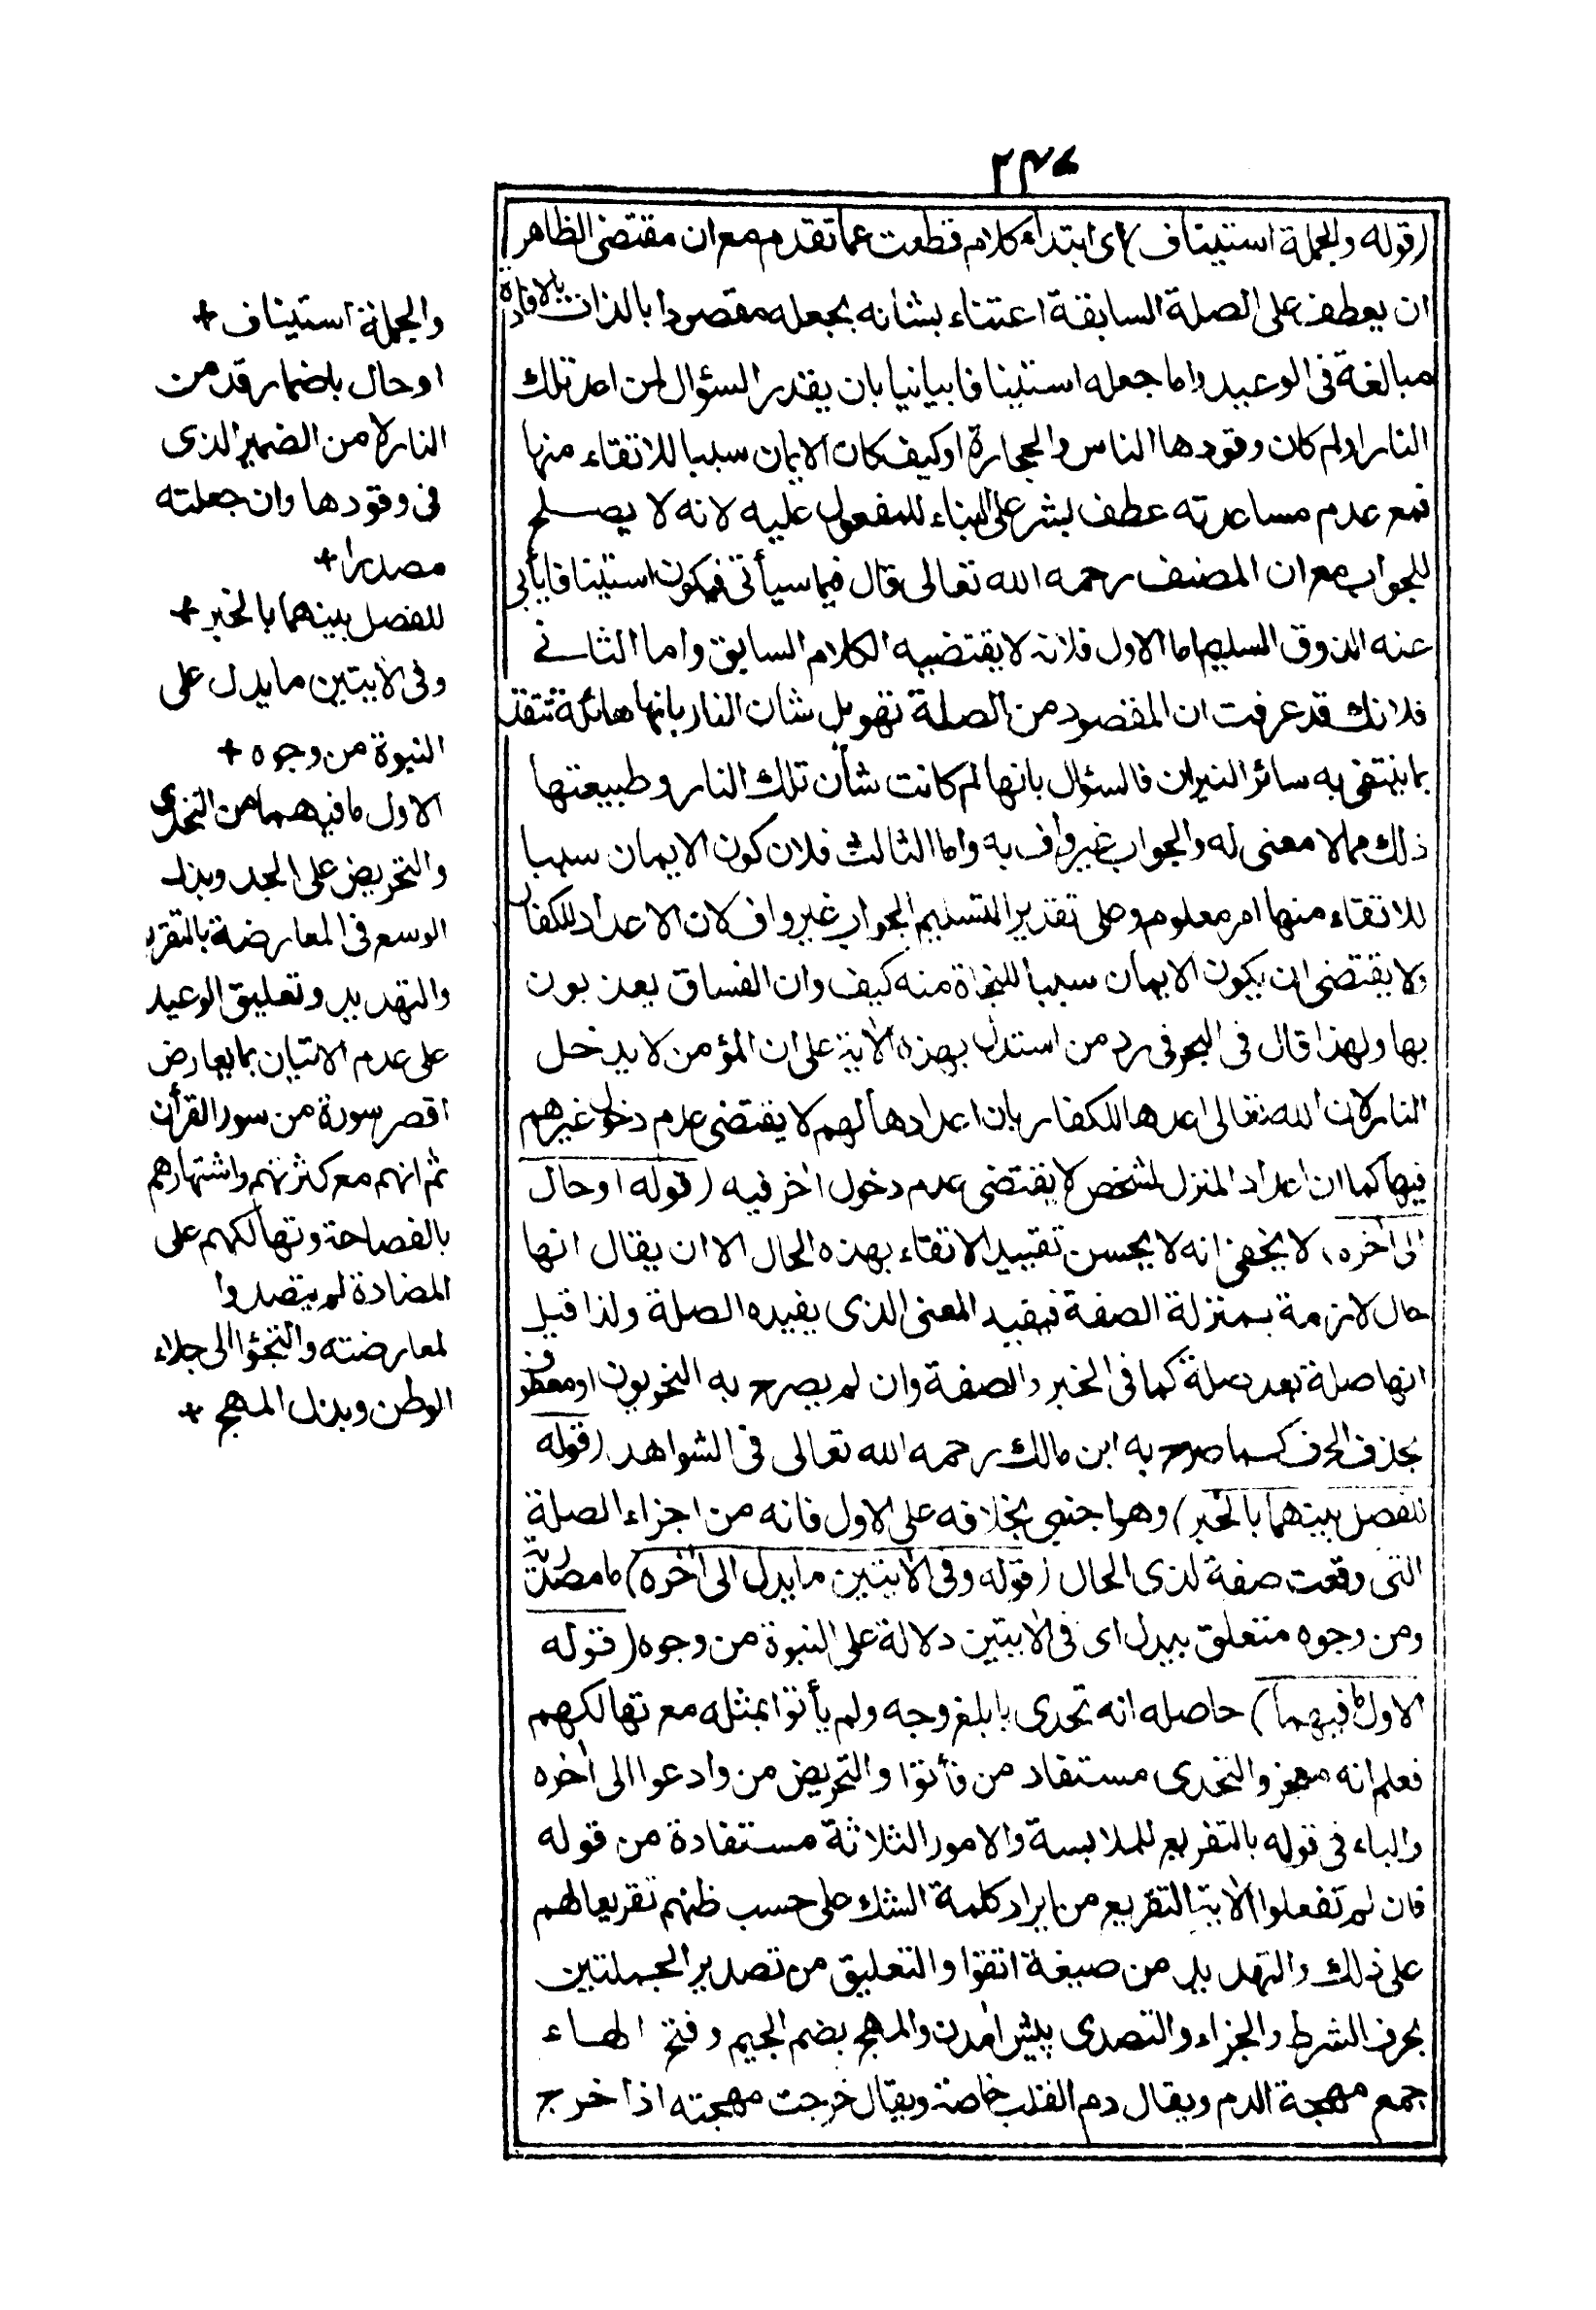 ٢٣٧
(قوله والجملة استيناف) اى ابتداء كلام قطعت عما تقدم مع ان مقتضى الظاهر
ان يعطف على الصلة السابقة اعتناء بشانه بجعله مقصودا بالذات بالافادة
مبالغة فى الوعيد واما جعله استينافا بيانيا بان يقدر السؤال لمن اعد تلك
النار او لم كان وقودها الناس والحجارة او كيف كان الايمان سببا للاتقاء منها
فمع عدم مساعدته عطف بشر على البناء للمفعول عليه لانه لا يصلح
للجواب مع ان المصنف رحمه الله تعالى قال فيما سيأتى فيكون استينافا يأبى
عنه الذوق السليم اما الاول فلانه لا يقتضيه الكلام السابق واما الثانى
فلانك قد عرفت ان المقصود من الصلة تهويل شان النار بانها هائلة تتقد
بما ينتفى به سائر النيران فالسؤال بانها لم كانت شأن تلك النار وطبيعتها
ذلك مما لا معنى له والجواب غير واف به واما الثالث فلان كون الايمان سببا
للاتقاء منها امر معلوم وعلى تقدير التسليم الجواب غير واف لان الاعداد للكفار
ولا يقتضى ان يكون الايمان سببا للنجاة منه كيف وان الفساق يعذبون
بها ولهذا قال فى البحر فى رد من استدل بهذه الآية على ان المؤمن لا يدخل
النار لان الله تعالى اعدها للكفار بان اعدادها لهم لا يقتضى عدم دخول غيرهم
فيها كما ان اعداد المنزل لشخص لا يقتضى عدم دخول آخر فيه (قوله او حال
الى آخره) لا يخفى انه لا يحسن تقييد الاتقاء بهذه الحال الا ان يقال انها
حال لازمة بمنزلة الصفة فيقيد المعنى الذى يفيده الصلة ولذا قيل
انها صلة بعد صلة كما فى الخبر والصفة وان لم يصرح به النحويون او معطوف
بحذف الحرف كما صرح به ابن مالك رحمه الله تعالى فى الشواهد (قوله
للفصل بينهما بالخبر) وهو اجنبى بخلافه على الاول فانه من اجزاء الصلة
التى وقعت صفة لذى الحال (قوله وفى الآيتين ما يدل الى آخره) ما مصدرية
ومن وجوه متعلق بيدل اى فى الآيتين دلالة على النبوة من وجوه (قوله
الاول ما فيهما) حاصله انه تحدى بابلغ وجه ولم يأتوا بمثله مع تهالكهم
فعلم انه معجز والتحدى مستفاد من فأتوا والتحريض من وادعوا الى آخره
والباء فى قوله بالتقريع للملابسة والامور الثلاثة مستفادة من قوله
فان لم تفعلوا الآية التقريع من ايراد كلمة الشك على حسب ظنهم تقريعا لهم
على ذلك والتهديد من صيغة اتقوا والتعليق من تصدير الجملتين
بحرف الشرط والجزاء والتصدى پيش امدن والمهج بضم الجيم وفتح الهاء
جمع مهجة الدم ويقال دم القلب خاصة ويقال خرجت مهجته اذا خرج
والجملة استيناف +
او حال باضمار قد من
النار لا من الضمير الذى
فى وقودها وان جعلته
مصدرا +
للفصل بينهما بالخبر +
وفى الآيتين ما يدل على
النبوة من وجوه +
الاول ما فيهما من التحدى
والتحريض على الجد وبذل
الوسع فى المعارضة بالتقريع
والتهديد وتعليق الوعيد
على عدم الاتيان بما يعارض
اقصر سورة من سور القرآن
ثم انهم مع كثرتهم واشتهارهم
بالفصاحة وتهالكهم على
المضادة لم يتصدوا
لمعارضته والتجؤا الى جلاء
الوطن وبذل المهج +